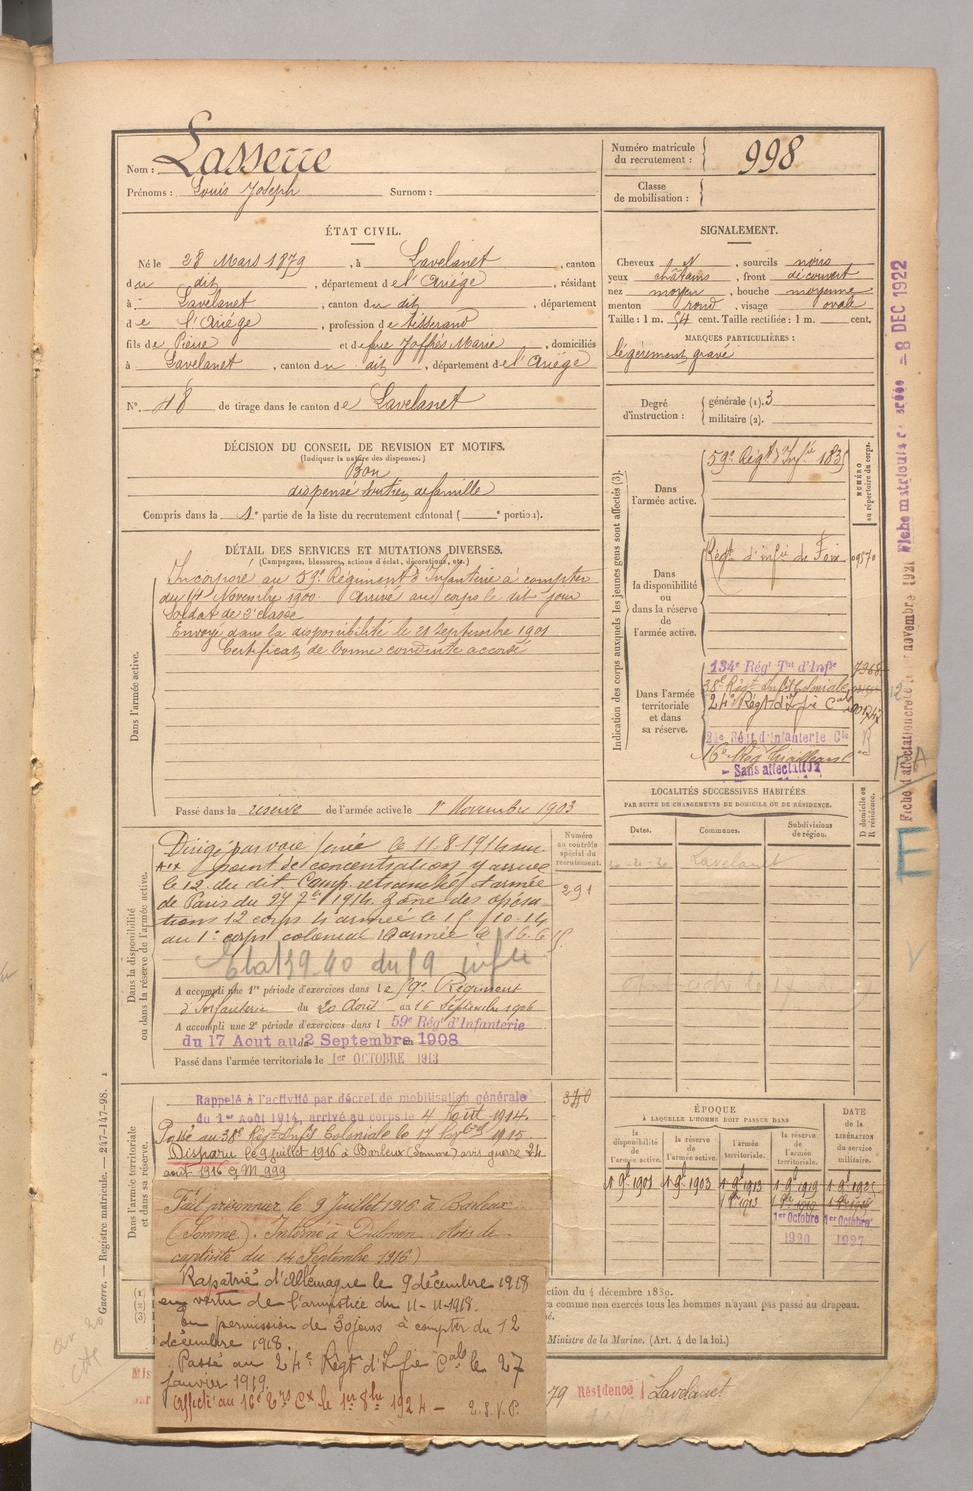 Nom : Lasserre
Prénoms : Louis Joseph Surnom :
Numéro matricule du recrutement : 998
Classe de mobilisation :
ÉTAT CIVIL.
Né le 28 Mars 1879, à Lavelanet, canton
du dit, département de l'Ariège, résidant
à Lavelanet, canton du dit, département
de l'Ariège, profession de tisserand
fils de Pierre et de feue Joffrès Marie, domiciliés
à Lavelanet, canton du dit, département de l'Ariège
N° 48 de tirage dans le canton de Lavelanet
SIGNALEMENT.
Cheveux N, sourcils noirs
yeux châtains, front découvert
nez moyen, bouche moyenne
menton rond, visage ovale
Taille : 1 m. 54 cent. Taille rectifiée : 1 m. cent.
MARQUES PARTICULIÈRES :
légèrement gravé
Degré d'instruction : générale (1). 3
militaire (2).
DÉCISION DU CONSEIL DE REVISION ET MOTIFS.
(Indiquer la nature des dispenses.)
Bon
dispensé soutien de famille
Compris dans la 1e partie de la liste du recrutement cantonal ( e portion).
DÉTAIL DES SERVICES ET MUTATIONS DIVERSES.
(Campagnes, blessures, actions d'éclat, décorations, etc.)
Dans l'armée active.
Incorporé au 59e Régiment d'Infanterie à compter
du Novembre 1900. Arrivé au corps le dit jour
Soldat de 2e classe
Envoyé dans la disponibilité le 21 Septembre 1901
Certificat de bonne conduite accordé
Passé dans la réserve de l'armée active le 1er Novembre 1903
Indication des corps auxquels les jeunes gens sont affectés (3).
NUMÉRO au répertoire du corps.
Dans l'armée active.
59e Régt d'Infie 1835
Dans la disponibilité ou dans la réserve de l'armée active.
Régt d'infie de Foix 09570
Dans l'armée territoriale et dans sa réserve.
134e Régt Tal d'Infie
38e Régt Infie Coloniale
24e Régt d'Infie Cale
21e Régt d'Infanterie Cle
16e Rég Tirailleurs
Sans affectation
Dans la disponibilité ou dans la réserve de l'armée active.
Numéro au contrôle spécial du recrutement.
291
Dirigé par voie ferrée le 11-8-1914 sur
point de concentration y arrivé
le 12 du dit. Camp retranché et armée
de Paris du 27 7bre 1914. Zone des opéra-
tions 12 corps 4e armée le 15-10-14
au 1er corps colonial armée le 16.6.15.
A accompli une 1re période d'exercices dans le 59e Régiment
d'Infanterie du 20 Août au 16 Septembre 1906
A accompli une 2e période d'exercices dans l 59e Rég' d'Infanterie
du 17 Aout au 2 Septembre 1908
Passé dans l'armée territoriale le 1er OCTOBRE 1913
LOCALITÉS SUCCESSIVES HABITÉES
PAR SUITE DE CHANGEMENTS DE DOMICILE OU DE RÉSIDENCE.
Dates. Communes. Subdivisions de région. D domicile ou R résidence.
Lavelanet
Dans l'armée territoriale et dans sa réserve.
Rappelé à l'activité par décret de mobilisation générale
du 1er Août 1914, arrivé au corps le 4 Août 1914.
Passé au 38e Régt Infie Coloniale le 17 1915
Disparu le 9 juillet 1916 à Barleux (Somme) avis guerre 24
août 1916 M 999
Fait prisonnier le 9 Juillet 1916 à Barleux
(Somme). Interné à Dülmen. (Avis de
captivité du 14 Septembre 1916)
Rapatrié d'Allemagne le 9 décembre 1918
en vertu de l'armistice du 11-11-1918.
En permission de 30 jours à compter du 12
décembre 1918.
Passé au 24e Régt d'Infie Cale le 27
janvier 1919.
Affecté au 16e le 1924 — T.S.V.P.
ÉPOQUE
À LAQUELLE L'HOMME DOIT PASSER DANS
la disponibilité de l'armée active. la réserve de l'armée active. l'armée territoriale. la réserve de l'armée territoriale. DATE de la LIBÉRATION du service militaire.
1 9bre 1901 1 9bre 1903 1 9bre 1913 1 9bre 1919 1 9bre 1925
1er Octobre 1920 1er Octobre 1927
ction du 4 décembre 1889.
ra comme non exercés tous les hommes n'ayant pas passé au drapeau.
Ministre de la Marine. (Art. 4 de la loi.)
79 Résidence Lavelanet
Guerre. — Registre matricule. — 247-147-98.
8 DEC 1922
novembre 1921